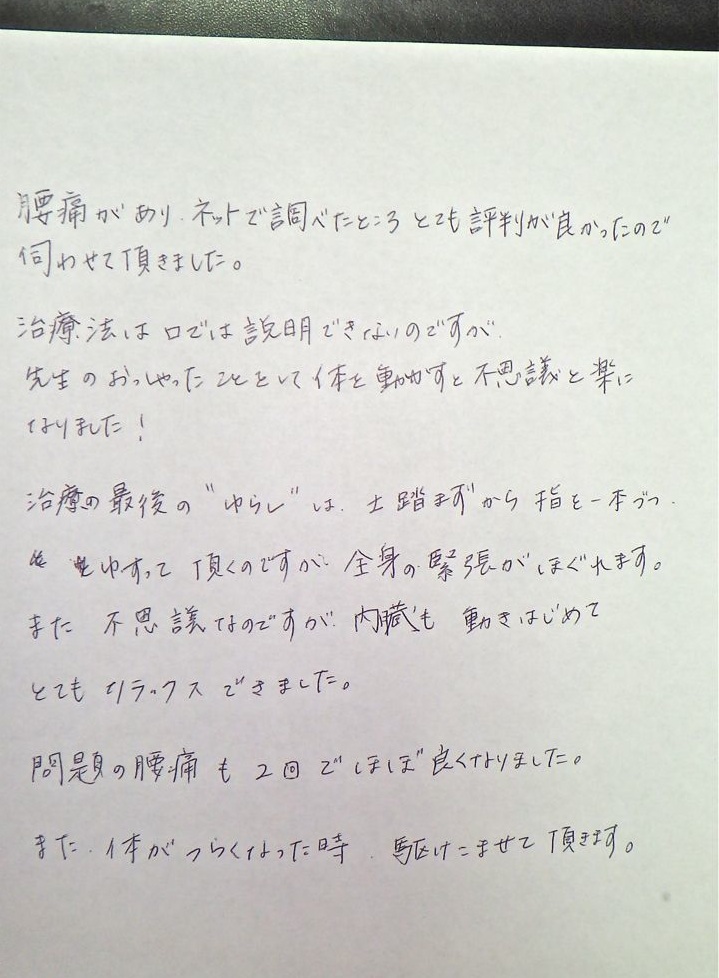 腰痛があり、ネットで調べたところ とても評判が良かったので
伺わせて頂きました。
治療法は口では説明できないのですが、
先生のおっしゃったことをして体を動かすと不思議と楽に
なりました!
治療の最後の"ゆらし"は、土踏まずから指を一本づつ、
をゆすって頂くのですが、全身の緊張がほぐれます。
また 不思議なのですが、内臓も 動きはじめて
とても リラックス できました。
問題の腰痛も 2回でほぼ良くなりました。
また、体がつらくなった時、駆けこませて頂きます。